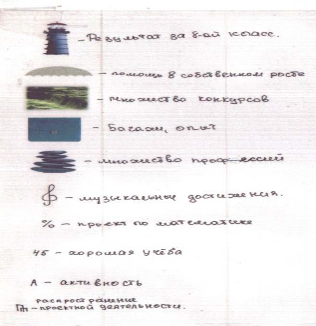 - Результат за 8-ой класс.
- помощь в собственном росте
- множество конкурсов
- Багаж, опыт
- множество профессий
- музыкальные достижения.
% - проект по математике
Чб - хорошая учёба
А - активность
распространение
- проектной деятельности.